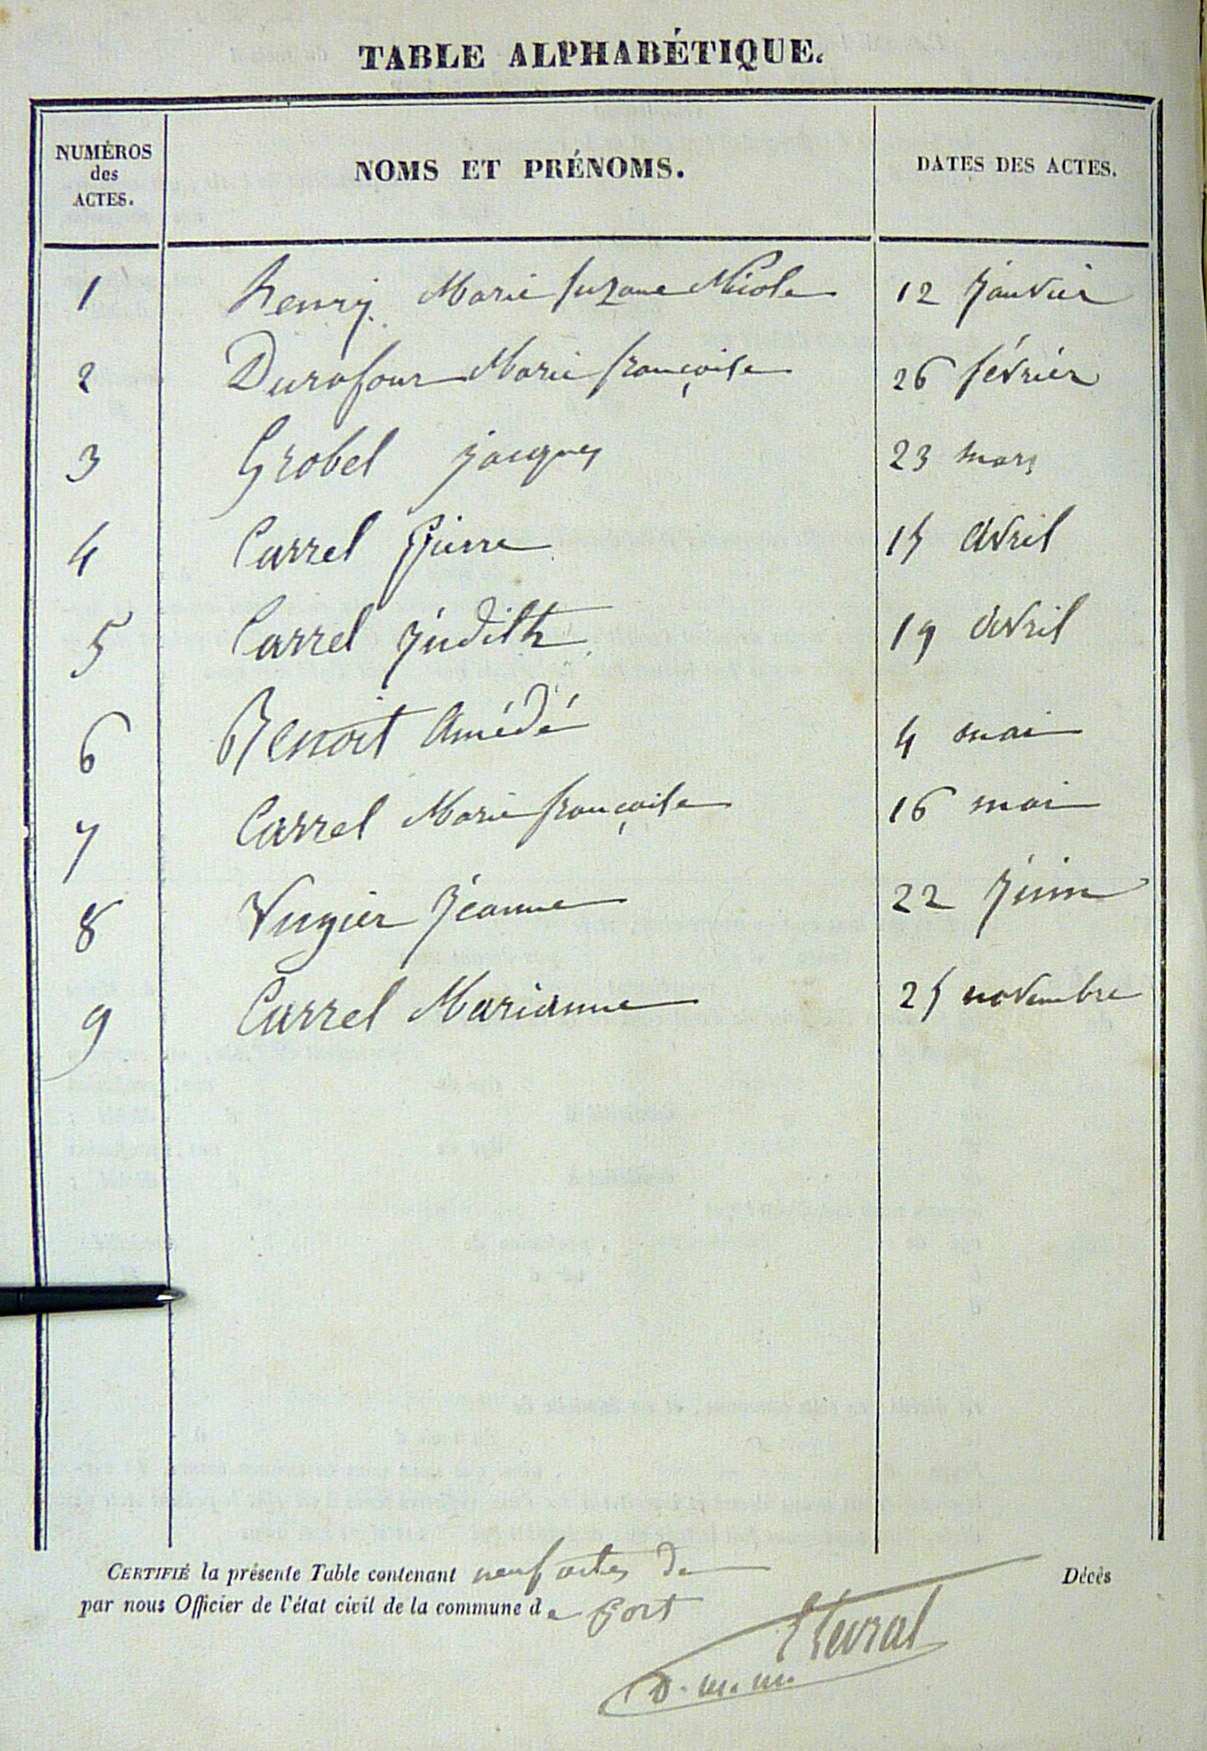 TABLE ALPHABÉTIQUE.
NUMÉROS des ACTES. NOMS ET PRÉNOMS. DATES DES ACTES.
1 Henry Marie Suzane Nicole 12 janvier
2 Durafour Marie françoise 26 février
3 Grobel jacques 23 mars
4 Carrel Pierre 15 avril
5 Carrel judith 19 avril
6 Benoit Amédé 4 mai
7 Carrel Marie françoise 16 mai
8 Jeanne 22 juin
9 Carrel Marianne 25 novembre
CERTIFIÉ la présente Table contenant neuf actes de Décès
par nous Officier de l'état civil de la commune de Port